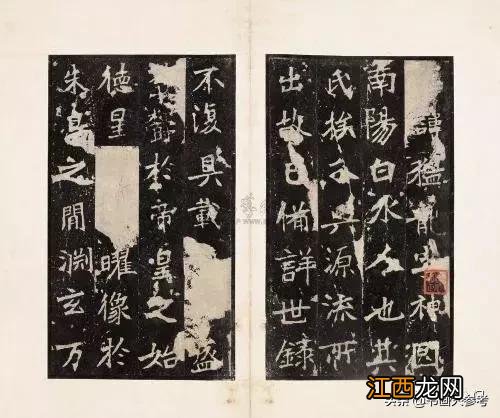 諱猛龍字神冏
南陽白水人也其
氏族分興源流所
出故已備詳世錄
不復具載 盛
於帝皇之始
徳星 曜像於
朱鳥之間淵玄万
江西龙网